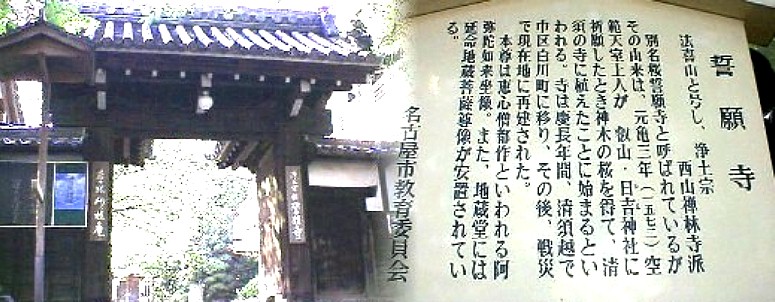 誓願寺
法喜山と号し、浄土宗
西山禅林寺派
別名桜誓願寺と呼ばれているが
その由来は、元亀三年(一五七二)空
範天室上人が 叡山・日吉神社に
祈願したとき神木の桜を得て、清
須の寺に植えたことに始まるとい
われる。寺は慶長年間、清須越で
中区白川町に移り、その後、戦災
で現在地に再建された。
本尊は恵心僧都作といわれる阿
弥陀如来坐像。また、地蔵堂には
延命地蔵菩薩尊像が安置されてい
る。
名古屋市教育委員会